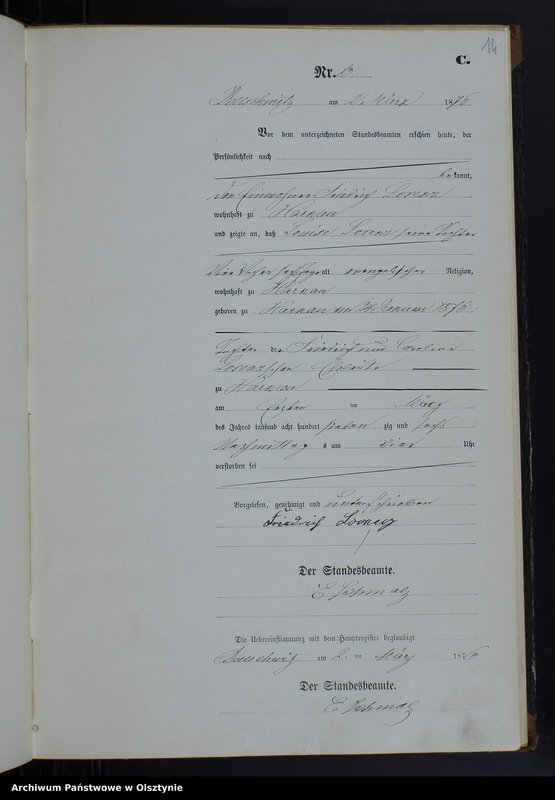 14
C.
Nr. 13.
am 2. März 1876.
Vor dem unterzeichneten Standesbeamten erschien heute, der
Persönlichkeit nach
bekannt,
der Einwohner Friedrich Lorenz
wohnhaft zu Harnau
und zeigte an, daß Louise Lorenz, seine Tochter
vier Wochen sechs Tage alt evangelischer Religion,
wohnhaft zu Harnau
geboren zu Harnau am Januar 1876.
Tochter der Friedrich und Caroline
Lorenzschen Eheleute
zu Harnau
am ersten im März
des Jahres tausend acht hundert siebenzig und sechs
Nachmittags um vier Uhr
verstorben sei
Vorgelesen, genehmigt und unterschrieben
Friedrich Lorenz
Der Standesbeamte.
E Schmalz
Die Uebereinstimmung mit dem Hauptregister beglaubigt
am 2. ten März 1876.
Der Standesbeamte.
E Schmalz
Archiwum Państwowe w Olsztynie